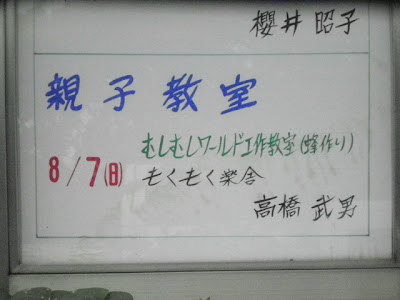 櫻井 昭子
親子教室
むしむしワールド工作教室(蜂作り)
8/7(日) もくもく楽舎
高橋 武男